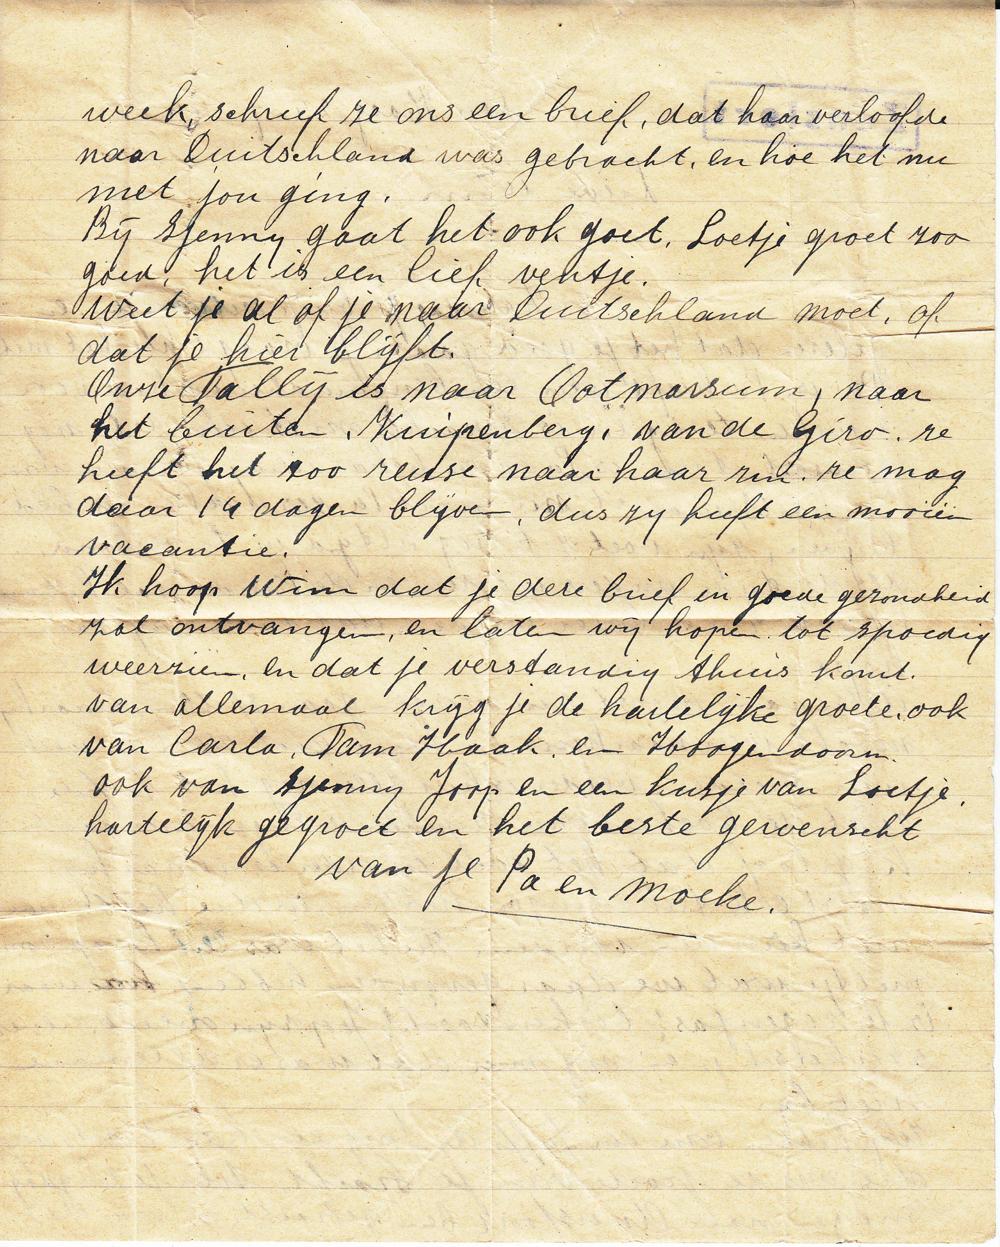 week, schreef ze ons een brief, dat haar verloofde
naar Duitschland was gebracht, en hoe het nu
met jou ging.
Bij Sjenny gaat het ook goet, Loetje groet zoo
goed, het is een lief ventje.
Weet je al of je naar Duitschland moet, of
dat je hier blijft.
Onze Tallij is naar Ootmarsum, naar
het buiten Kuipenberg, van de Giro. ze
heeft het zoo reuse naar haar zin. ze mag
daar 14 dagen blijven, dus zy heeft een mooien
vacantie.
Ik hoop Wim dat je deze brief in goede gezondheid
zal ontvangen, en laten wij hopen tot spoedig
weerzien, en dat je verstandig thuis komt.
van allemaal krijg je de hartelijke groete, ook
van Carla, Tam Haak, en Hoogendoorn.
ook van Sjenny Joop en een kusje van Loetje.
hartelijk gegroet en het beste gewenscht
van je Pa en Moeke.